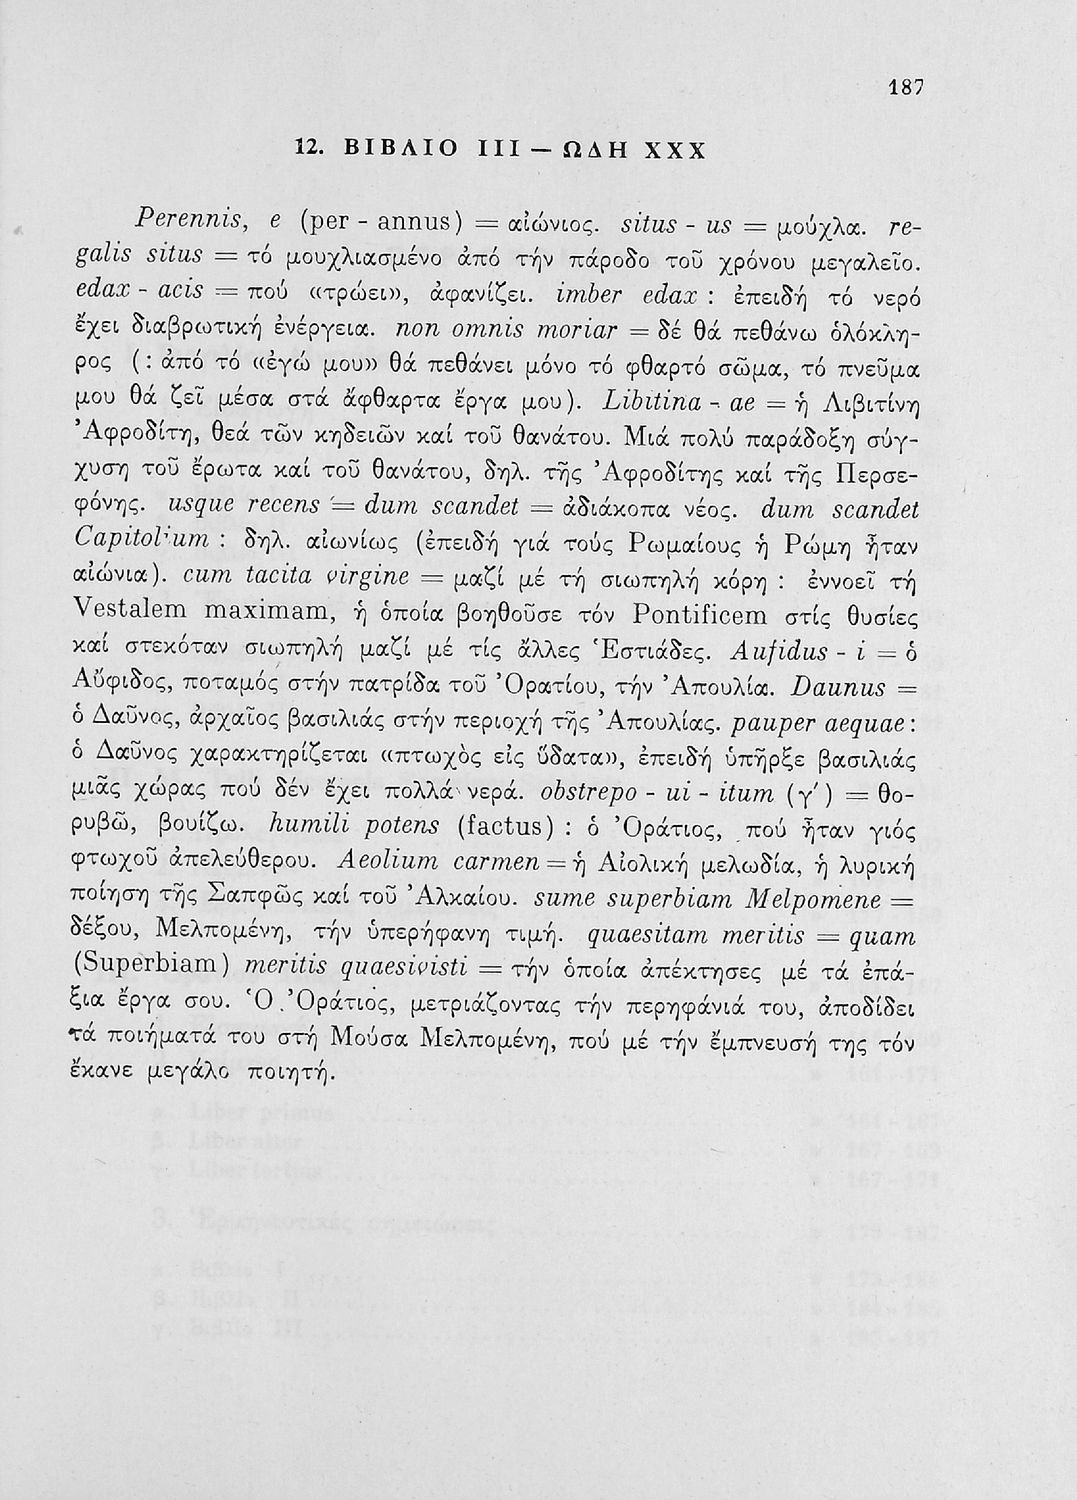 187
12. ΒΙΒΛΙΟ ΙΙΙ — ΩΔΗ ΧΧΧ
Perennis, e (per - annus) = αἰώνιος. situs - us = μούχλα. re-
galis situs = τό μουχλιασμένο ἀπό τήν πάροδο τοῦ χρόνου μεγαλεῖο.
edax - acis = πού «τρώει», ἀφανίζει. imber edax : ἐπειδή τό νερό
ἔχει διαβρωτική ἐνέργεια. non omnis moriar = δέ θά πεθάνω ὁλόκλη-
ρος (: ἀπό τό «ἐγώ μου» θά πεθάνει μόνο τό φθαρτό σῶμα, τό πνεῦμα
μου θά ζεῖ μέσα στά ἄφθαρτα ἔργα μου). Libitina - ae = ἡ Λιβιτίνη
Ἀφροδίτη, θεά τῶν κηδειῶν καί τοῦ θανάτου. Μιά πολύ παράδοξη σύγ-
χυση τοῦ ἔρωτα καί τοῦ θανάτου, δηλ. τῆς Ἀφροδίτης καί τῆς Περσε-
φόνης. usque recens = dum scandet = ἀδιάκοπα νέος. dum scandet
Capitolium : δηλ. αἰωνίως (ἐπειδή γιά τούς Ρωμαίους ἡ Ρώμη ἦταν
αἰώνια). cum tacita virgine = μαζί μέ τή σιωπηλή κόρη : ἐννοεῖ τή
Vestalem maximam, ἡ ὁποία βοηθοῦσε τόν Pontificem στίς θυσίες
καί στεκόταν σιωπηλή μαζί μέ τίς ἄλλες Ἑστιάδες. Aufidus - i = ὁ
Αὔφιδος, ποταμός στήν πατρίδα τοῦ Ὁρατίου, τήν Ἀπουλία. Daunus =
ὁ Δαῦνος, ἀρχαῖος βασιλιάς στήν περιοχή τῆς Ἀπουλίας. pauper aequae :
ὁ Δαῦνος χαρακτηρίζεται «πτωχὸς εἰς ὕδατα», ἐπειδή ὑπῆρξε βασιλιάς
μιᾶς χώρας πού δέν ἔχει πολλά νερά. obstrepo - ui - itum (γ΄) = θο-
ρυβῶ, βουίζω. humili potens (factus) : ὁ Ὀράτιος, πού ἦταν γιός
φτωχοῦ ἀπελεύθερου. Aeolium carmen = ἡ Αἰολική μελωδία, ἡ λυρική
ποίηση τῆς Σαπφῶς καί τοῦ Ἀλκαίου. sume superbiam Melpomene =
δέξου, Μελπομένη, τήν ὑπερήφανη τιμή. quaesitam meritis = quam
(Superbiam) meritis quaesivisti = τήν ὁποία ἀπέκτησες μέ τά ἐπά-
ξια ἔργα σου. Ὁ Ὀράτιος, μετριάζοντας τήν περηφάνιά του, ἀποδίδει
τά ποιήματά του στή Μούσα Μελπομένη, πού μέ τήν ἔμπνευσή της τόν
ἔκανε μεγάλο ποιητή.